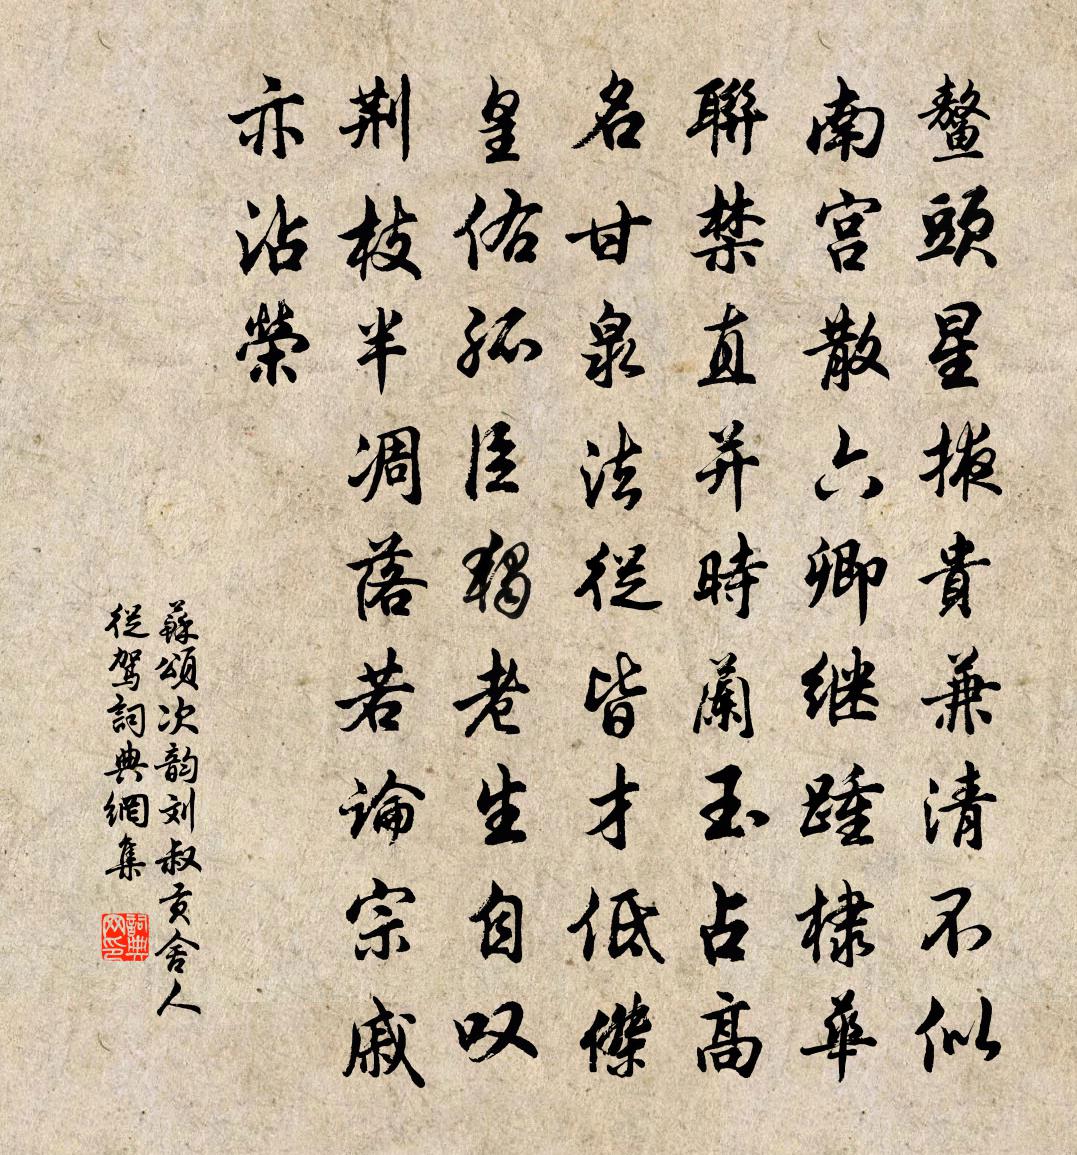 鰲頭星掖貴兼清不似
南宮散六卿继踵棣華
聯禁直并時蘭玉占高
名甘泉法從皆才低傑
皇佑孤臣獨老生自叹
荆枝半凋落若論宗戚
亦沾榮
蘇頌次韵刘叔贡舍人
從駕詞典網集
詞典网印